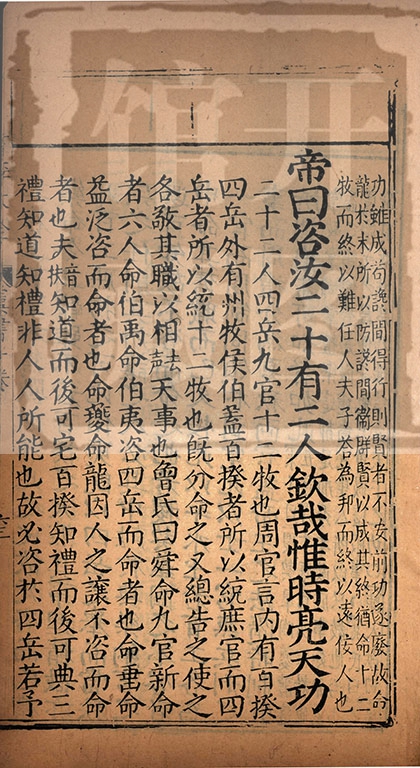 功雖成苟讒間得行則賢者不安前功遂廢故命
龍於末所以防讒間衞群賢以成其終猶命十二
牧而終以難任人夫子答為邦而終以遠佞人也
帝曰咨汝二十有二人欽哉惟時亮天功
二十二人四岳九官十二牧也周官言內有百揆
四岳外有州牧侯伯蓋百揆者所以統庶官而四
岳者所以統十二牧也既分命之又總告之使之
各敬其職以相天事也曾氏曰舜命九官新命
者六人命伯禹命伯夷咨四岳而命者也命垂命
益泛咨而命者也命夔命龍因人之讓不咨而命
者也夫知道而後可宅百揆知禮而後可典三
禮知道知禮非人人所能也故必咨於四岳若予